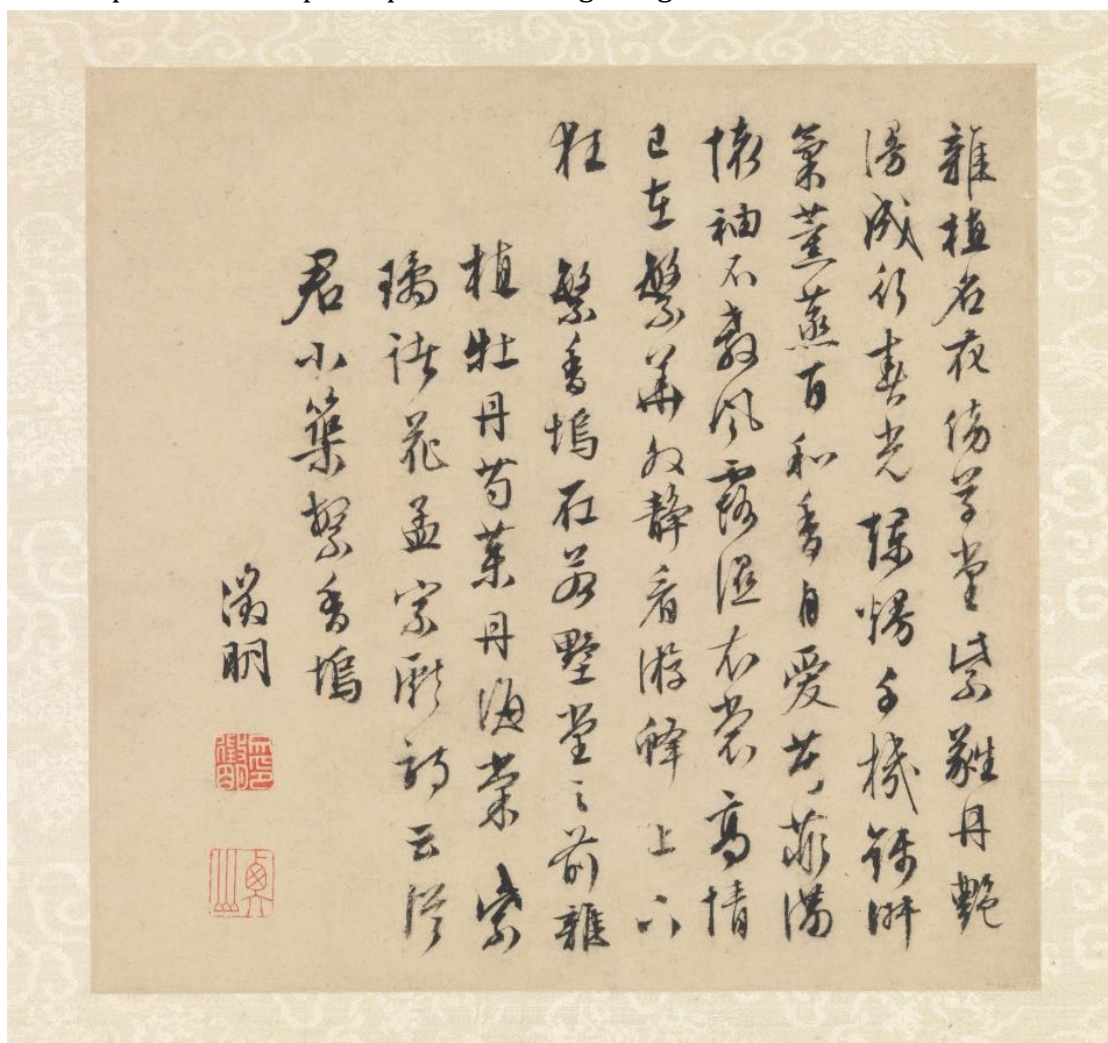 雜植名花傍草堂紫蕤丹艷
漫成行春光爛熳千機錦淑
氣薰蒸百和香自愛芳菲滿
懷袖不教風露濕衣裳高情
已在繁華外靜看游蜂上下
狂 繁香塢在若墅堂之前雜
植牡丹芍藥丹海棠紫
璚諸花孟宗獻詩云從
君小築繁香塢
徵明